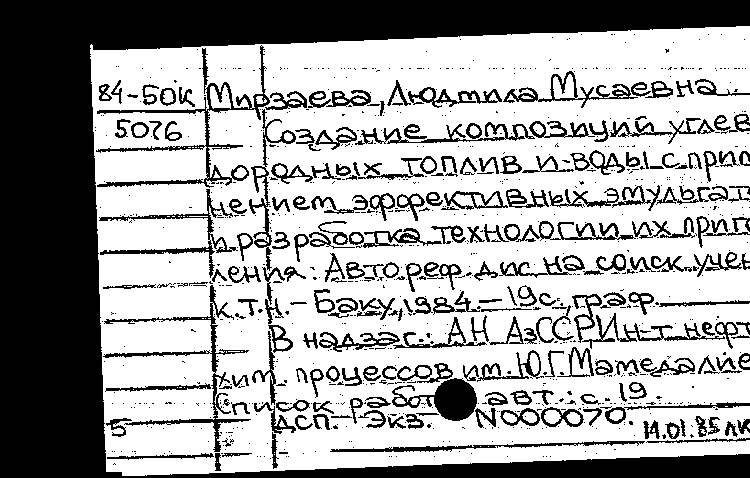 84-50к Мирзаева, Людмила Мусаевна.
5076 Создание композиций углев
дородных топлив и воды с прим
нением эффективных эмульгат
и разработка технологии их приго
ления: Автореф. дис на соиск учен
к.т.н. - Баку, 1984. - 19с, граф
В надзаг.: АН АзССР Ин-т нефт
хим. процессов им. Ю.Г. Мамедалие
Список работ авт.: с. 19.
5 ДСП. Экз. N000070.
14.01.85 лк